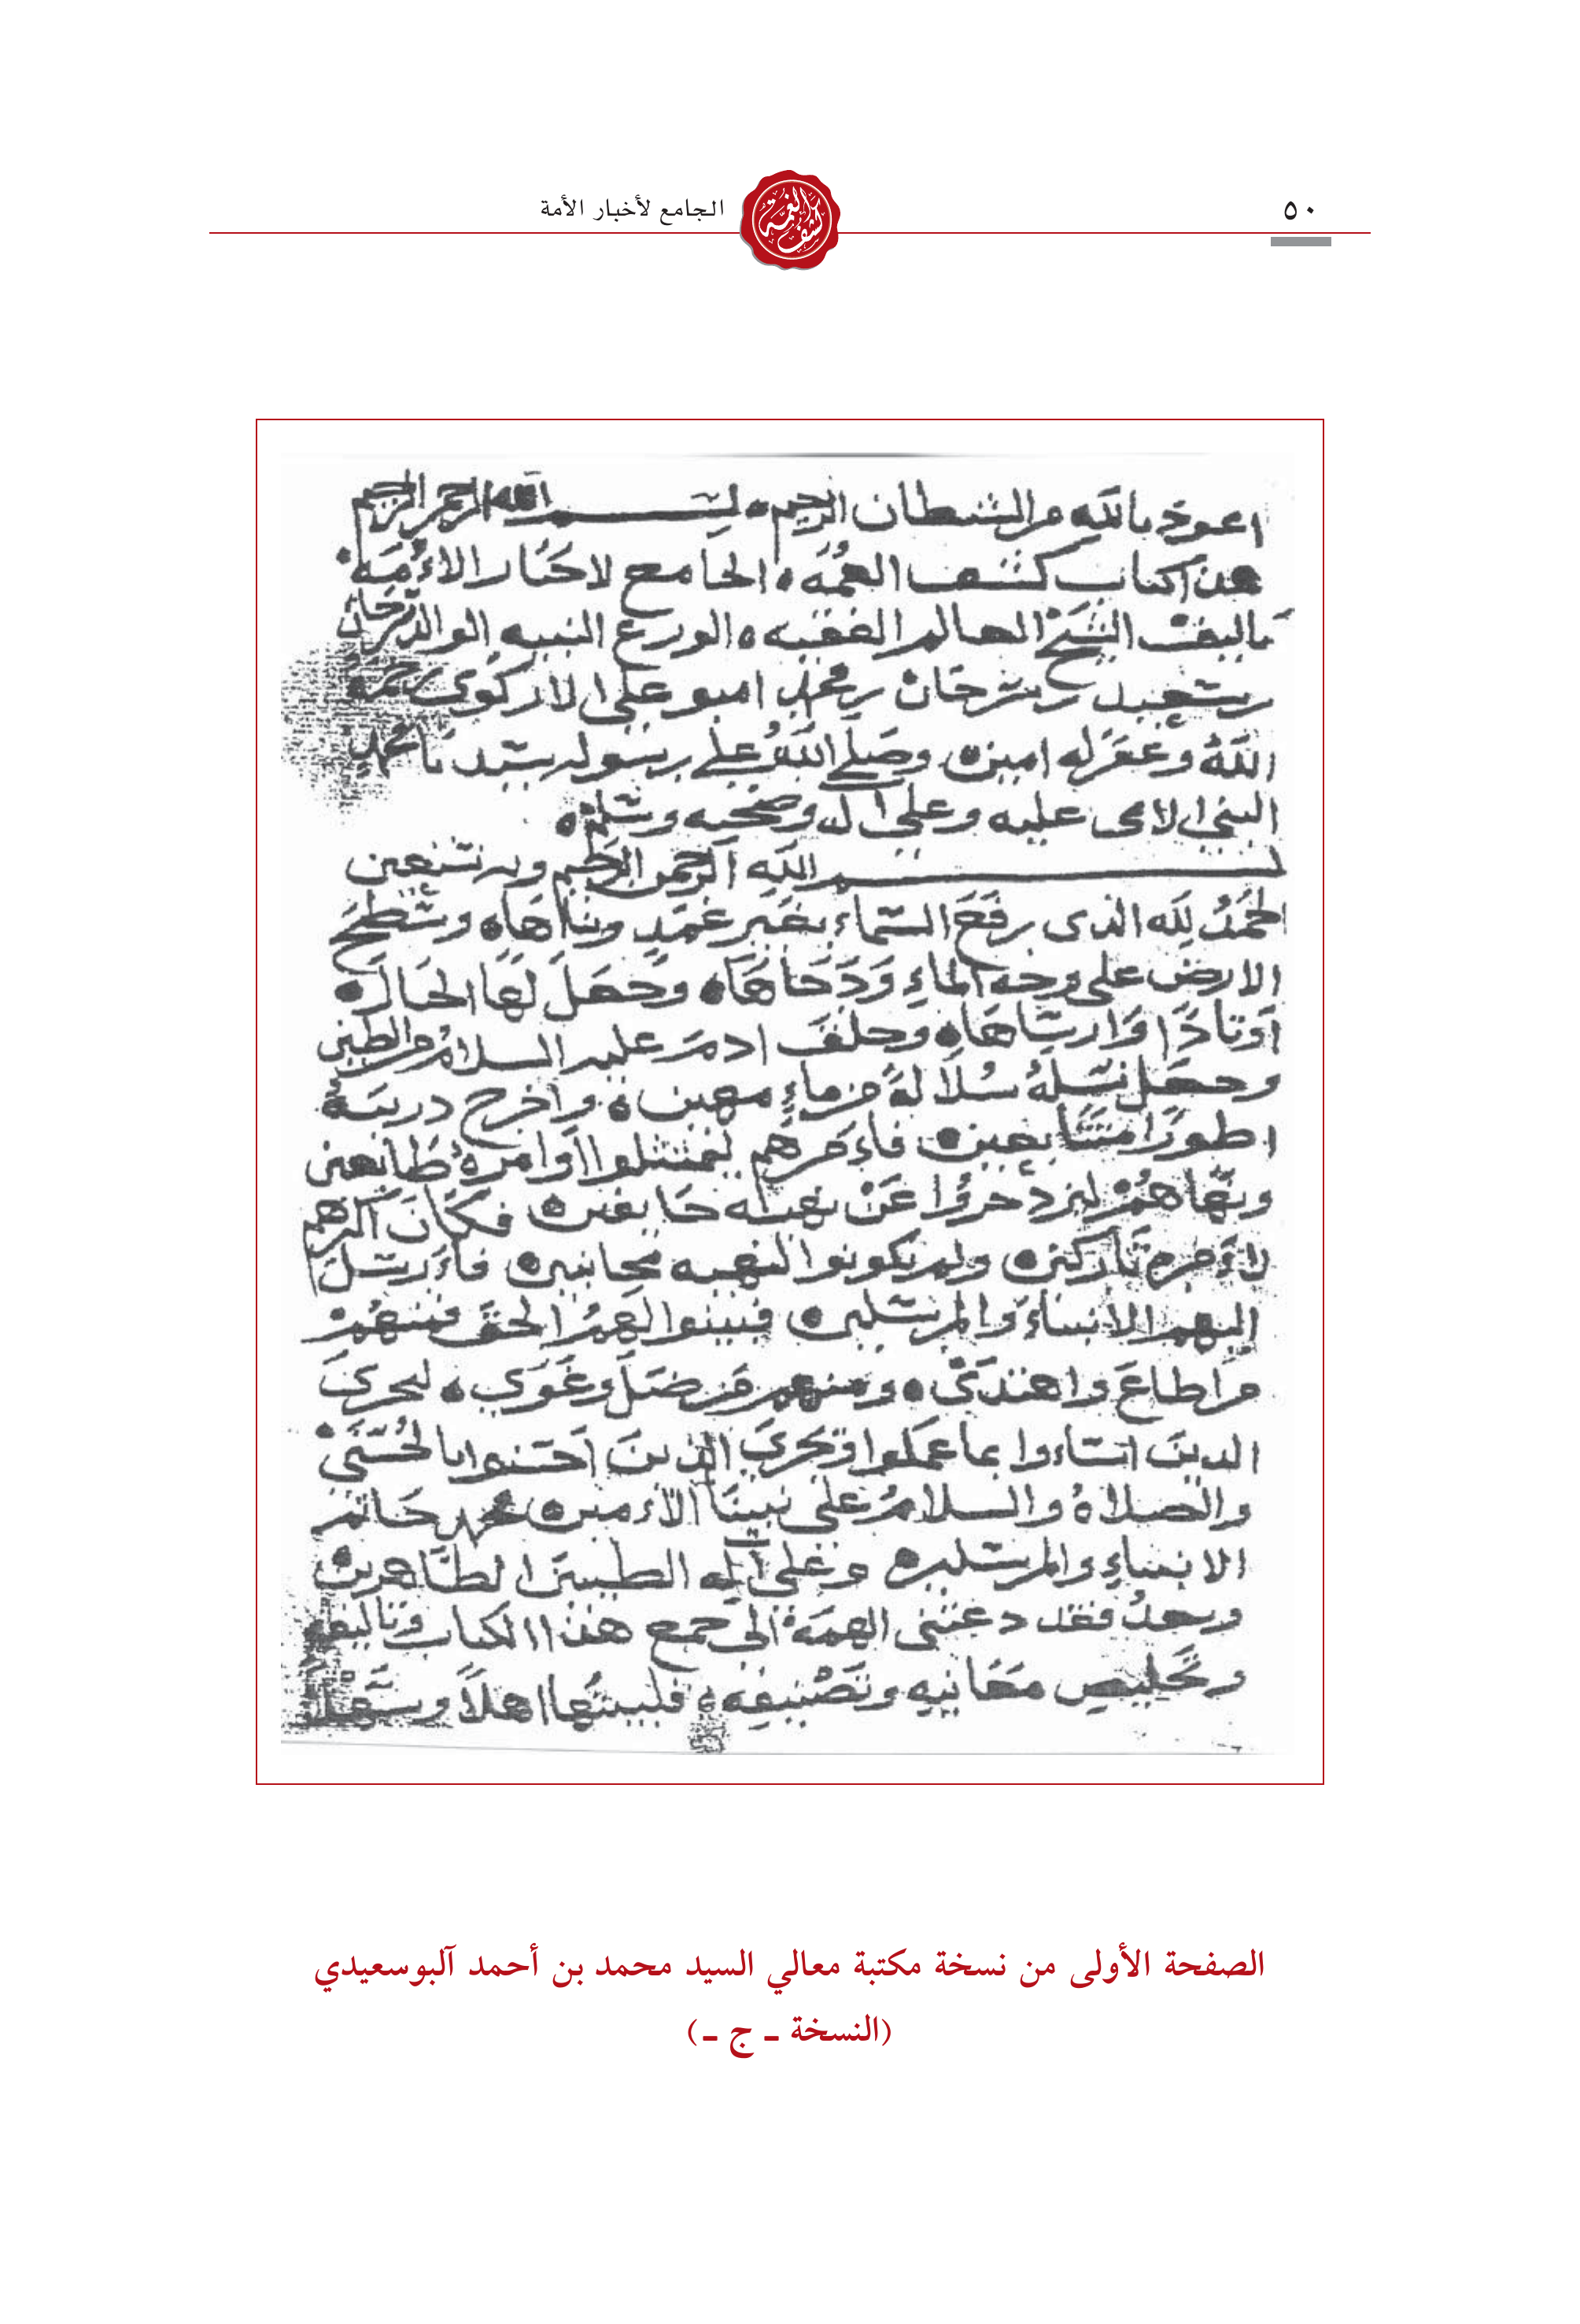 ٥٠
كشف الغمة
الجامع لأخبار الأمة
اعوذ بالله من الشيطان الرجيم بسم الله الرحمن الرحيم
هذا كتاب كشف الغمه الجامع لاخبار الاءمه
تاليف الشيخ العالم الفقيه الورع النبيه الوالد سرحان
بن سعيد بن سرحان بن محمد امبو علي الازكوي رحمه
الله وغفر له امين وصلى الله على رسوله سيدنا محمد
النبي الامي عليه وعلى آله وصحبه وسلم
بسم الله الرحمن الرحيم وبه نستعين
الحمد لله الذي رفع السماء بغير عمد وبناها وسطح
الارض على وجه الماء ودحاها وجعل لها الجبال
اوتادا وارساها وخلق ادم عليه السلام من الطين
وجعل نسله سلالة من ماء مهين واخرج دريته
اطورا متتابعين فاءمرهم ليمتثلوا اوامره طايعين
ونهاهم لينزدجروا عن نهيه خايفين فكان اكثرهم
لاءمره تاركين ولم يكونوا لنهيه مجانبين فاءرسل
اليهم الانبياء والمرسلين فبينوا لهم الحق فمنهم
من اطاع واهتدى ومنهم من ضل وغوى ليجزي
الدين اساءوا بما عملوا ويجزي الذين احسنوا بالحسنى
والصلاة والسلام على نبينا الاءمين محمد خاتم
الانبياء والمرسلين وعلى آله الطيبين الطاهرين
وبعد فقد دعتني الهمة الى جمع هذا الكتاب وتاليفه
وتخليص معانيه وتصنيفه فلبيتها اهلا وسهلا
الصفحة الأولى من نسخة مكتبة معالي السيد محمد بن أحمد آلبوسعيدي
(النسخة ـ ج ـ)